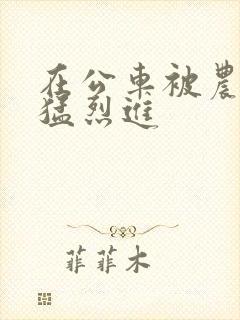 在公車被農
猛烈進
菲菲木